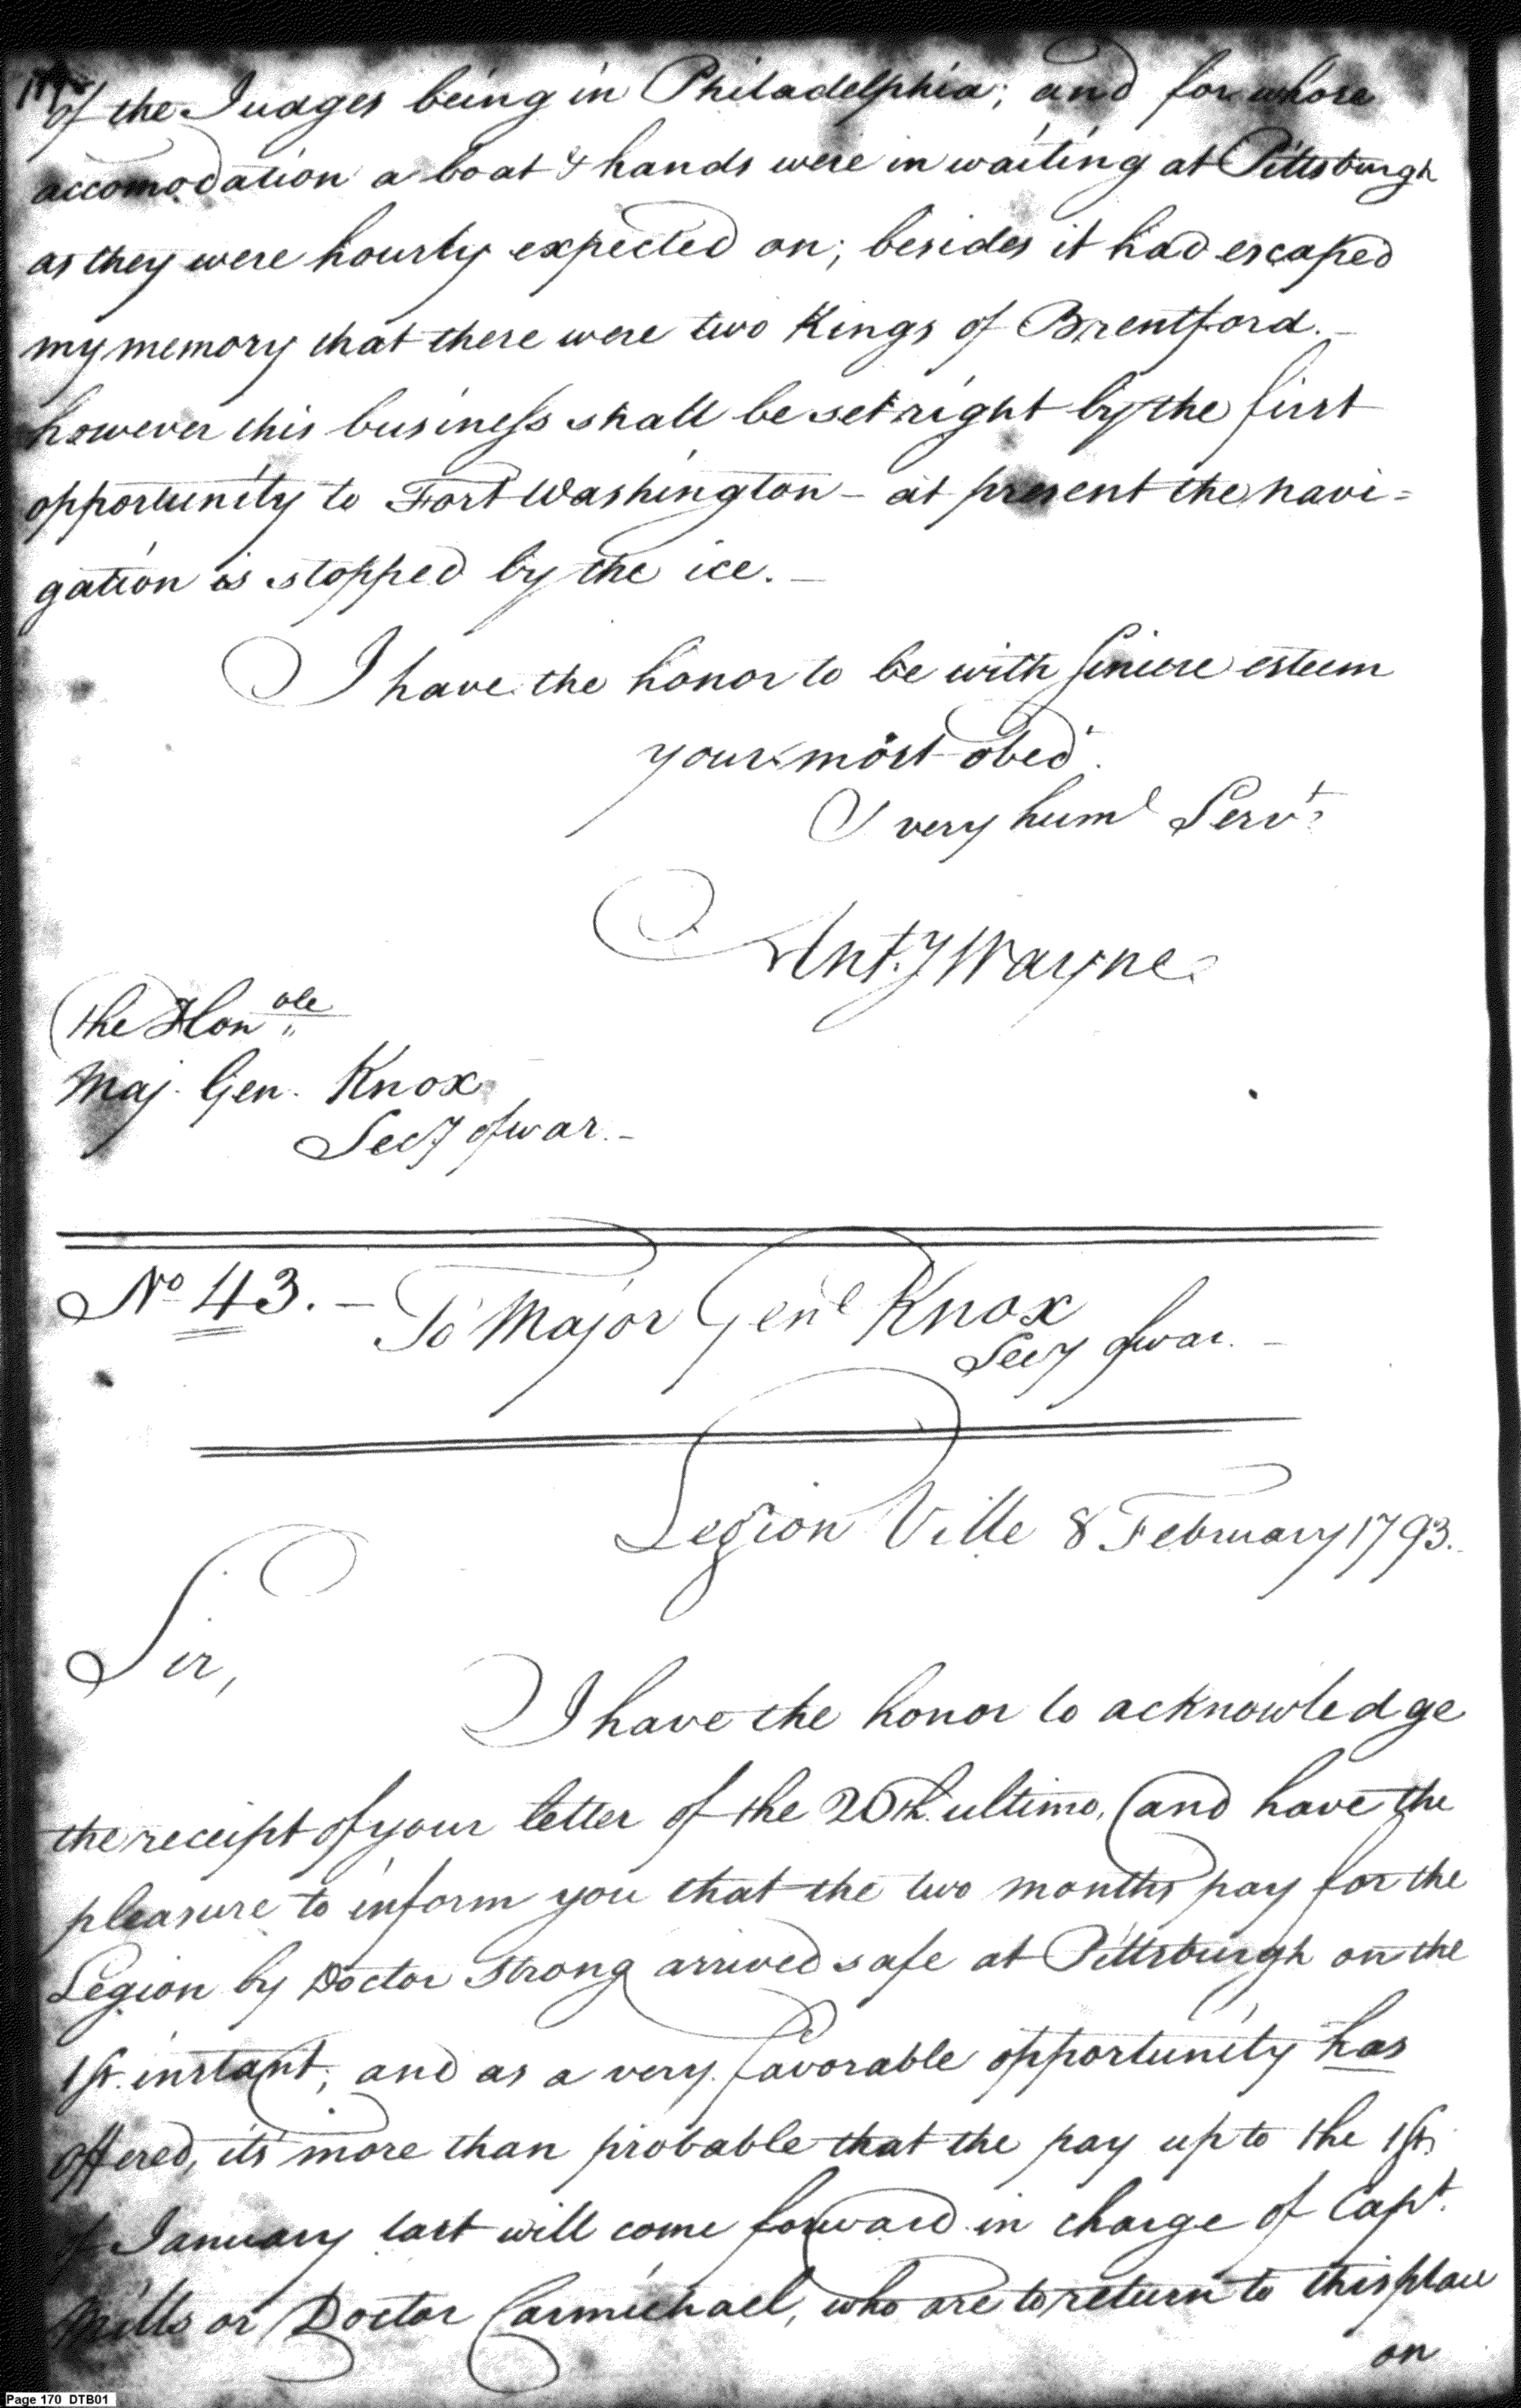 of the Judges being in Philadelphia; and for whose
accomodation a boat & hands were in waiting at Pittsburgh
as they were hourly expected on; besides it had escaped
my memory that there were two Kings of Brentford. —
however this business shall be set right by the first
opportunity to Fort Washington — at present the navi=
gation is stopped by the ice. —
I have the honor to be with sincere esteem
your most obed.t
& very huml Servt
Ant.y Wayne
The Honole
Maj. Gen. Knox
Secy of war. —
No 43. — To Major Genl Knox
Secy of war. —
Legion Ville 8 February 1793.
Sir,
I have the honor to acknowledge
the receipt of your letter of the 26th. ultimo, and have the
pleasure to inform you that the two months pay for the
Legion by Doctor Strong arrived safe at Pittsburgh on the
1st. instant; and as a very favorable opportunity has
offered, its more than probable that the pay up to the 1st.
of January last will come forward in charge of Capt.
Mills or Doctor Carmichael, who are to return to this place
on
Page 170 DTB01